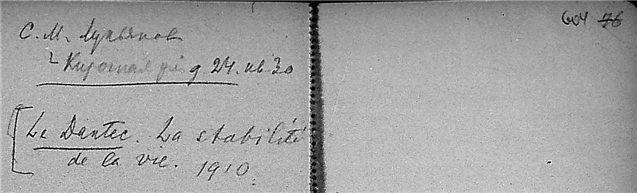 С. М. Лукьянов
д 24. кв 30
Le Dantec. La stabilité
de la vie. 1910.
604 76